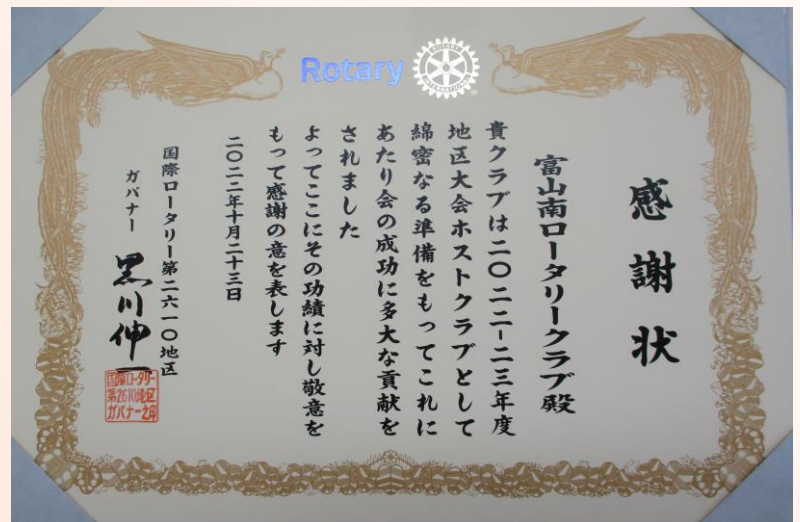 Rotary
ROTARY
INTERNATIONAL
感謝状
富山南ロータリークラブ殿
貴クラブは二〇二二-二三年度
地区大会ホストクラブとして
綿密なる準備をもってこれに
あたり会の成功に多大な貢献を
されました
よってここにその功績に対し敬意を
もって感謝の意を表します
二〇二二年十月二十三日
国際ロータリー第二六一〇地区
ガバナー 黒川伸一
国際ロータリー
第2610地区
ガバナー之印